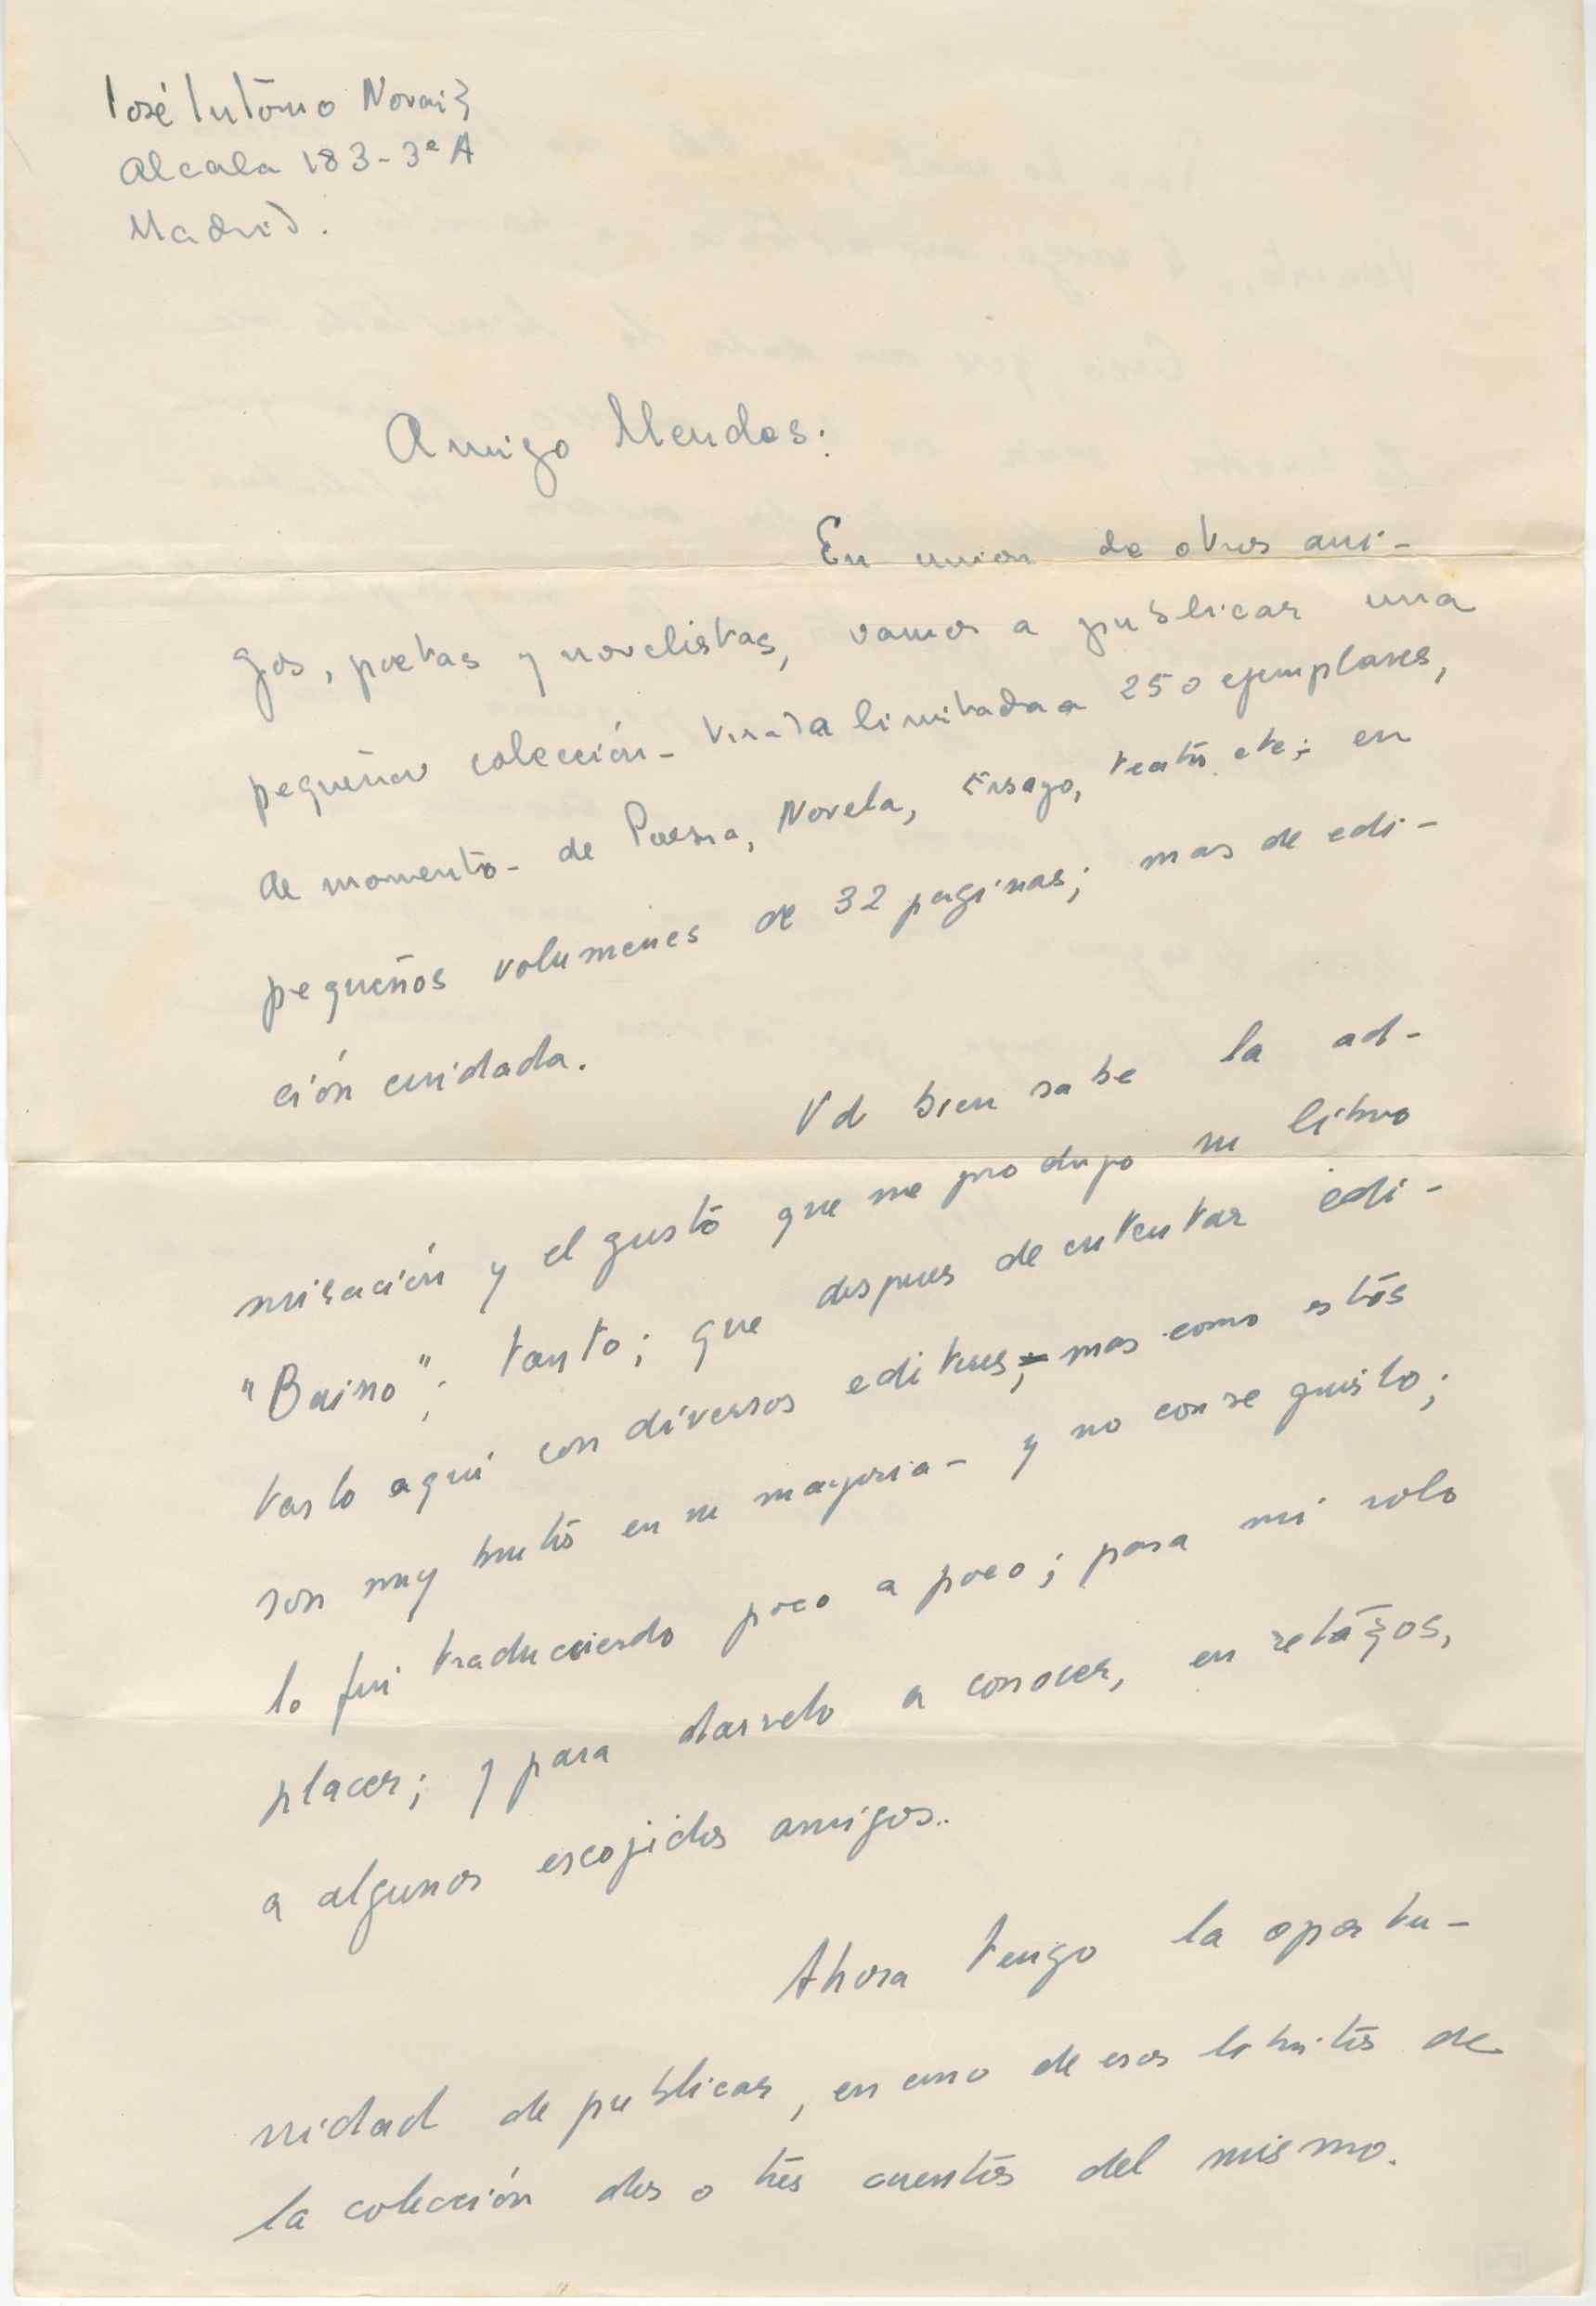 José Antonio Novais
Alcala 183-3º A
Madrid.
Amigo Mendes:
En union de otros ami-
gos, poetas y novelistas, vamos a publicar una
pequeña colección- tirada limitada a 250 ejemplares,
de momento- de Poesia, Novela, Ensayo, teatro etc; en
pequeños volumenes de 32 paginas; mas de edi-
ción cuidada.
Vd bien sabe la ad-
miración y el gusto que me produjo su libro
"Bairro"; tanto; que despues de intentar edi-
tarlo aqui con diversos editores,- mas como estos
son muy brutos en su mayoria- y no conseguirlo;
lo fui traduciendo poco a poco; para mi solo
placer; y para darselo a conocer, en retazos,
a algunos escojidos amigos..
Ahora tengo la oportu-
nidad de publicar, en uno de esos libritos de
la colección dos o tres cuentos del mismo.